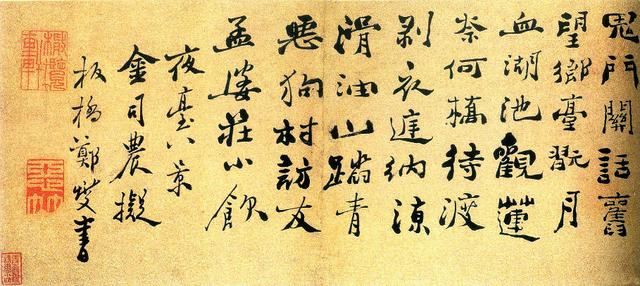 鬼門關話舊
望鄉臺翫月
血湖池觀蓮
奈何橋待渡
剝衣庭納涼
滑油山踏青
惡狗村訪友
孟婆莊小飲
夜臺八景
金司農擬
板橋鄭燮書